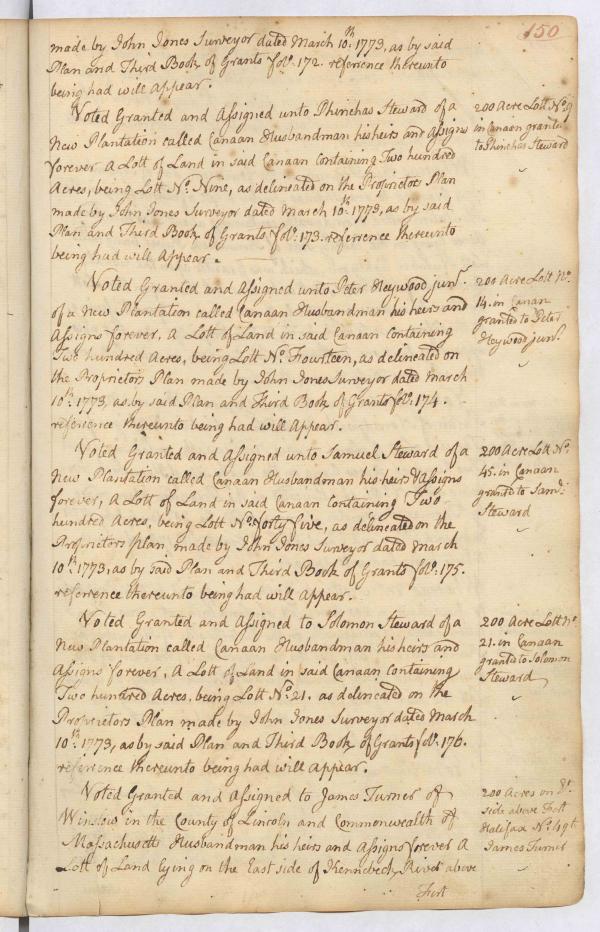 150
made by John Jones Surveyor dated March 10th. 1773, as by said
Plan and Third Book of Grants fol: 172. referrence thereunto
being had will appear.
Voted Granted and Assigned unto Phinehas Steward of a
New Plantation called Canaan Husbandman his heirs and Assigns
forever A Lott of Land in said Canaan Containing Two hundred
Acres, being Lott No. Nine, as delineated on the Proprietors Plan
made by John Jones Surveyor dated March 10th. 1773, as by said
Plan and Third Book of Grants fol: 173. referrence thereunto
being had will Appear.
200 Acre Lott No. 9
in Canaan grante
to Phinehas Steward
Voted Granted and Assigned unto Peter Heywood junr.
of a New Plantation called Canaan Husbandman his heirs and
Assigns forever, A Lott of Land in said Canaan Containing
Two hundred Acres, being Lott No. Fourteen, as delineated on
the Proprietors Plan made by John Jones Surveyor dated March
10th. 1773, as by said Plan and Third Book of Grants fol: 174.
referrence thereunto being had will Appear.
200 Acre Lott No.
14. in Canan
granted to Peter
Heywood junr.
Voted Granted and Assigned unto Samuel Steward of a
New Plantation called Canaan Husbandman his heirs & Assigns
forever, A Lott of Land in said Canaan Containing Two
hundred Acres, being Lott No. forty five, as delineated on the
Proprietors plan made by John Jones Surveyor dated March
10th. 1773, as by said Plan and Third Book of Grants fol: 175.
referrence thereunto being had will Appear.
200 Acre Lott No.
45. in Canaan
granted to Saml.
Steward
Voted Granted and Assigned to Solomon Steward of a
New Plantation called Canaan Husbandman his heirs and
Assigns forever, A Lott of Land in said Canaan Containing
Two hundred Acres, being Lott No. 21. as delineated on the
Proprietors Plan made by John Jones Surveyor dated March
10th. 1773, as by said Plan and Third Book of Grants fol: 176.
referrence thereunto being had will Appear.
200 Acre Lott No.
21. in Canaan
granted to Solomon
Steward
Voted Granted and Assigned to James Turner of
Winslow in the County of Lincoln and Commonwealth of
Massachusetts Husbandman his heirs and Assigns forever A
Lott of Land lying on the East side of Kennebeck River above
200 Acres on Et.
side above Fort
Halifax No. 49 to
James Turner
Fort